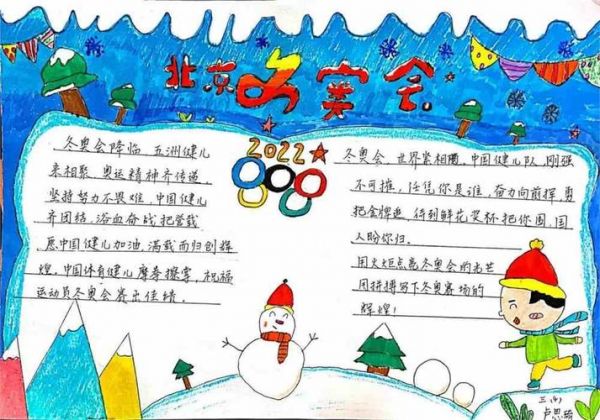 北京冬奥会
2022
冬奥会降临 五洲健儿
来相聚.奥运精神齐传递.
坚持努力不畏难,中国健儿
齐团结,浴血奋战把誉载
愿中国健儿加油,满载而归创辉
煌.中国体育健儿摩拳擦掌,祝福
运动员冬奥会赛出佳绩.
冬奥会,世界紧相圈.中国健儿队,刚强
不可摧,任凭你是谁,奋力向前挥,勇
把金牌追.待到鲜花奖杯把你围,国
人盼你归.
用火炬点亮冬奥会的光芒
用拼搏写下冬奥赛场的
辉煌!
卢思